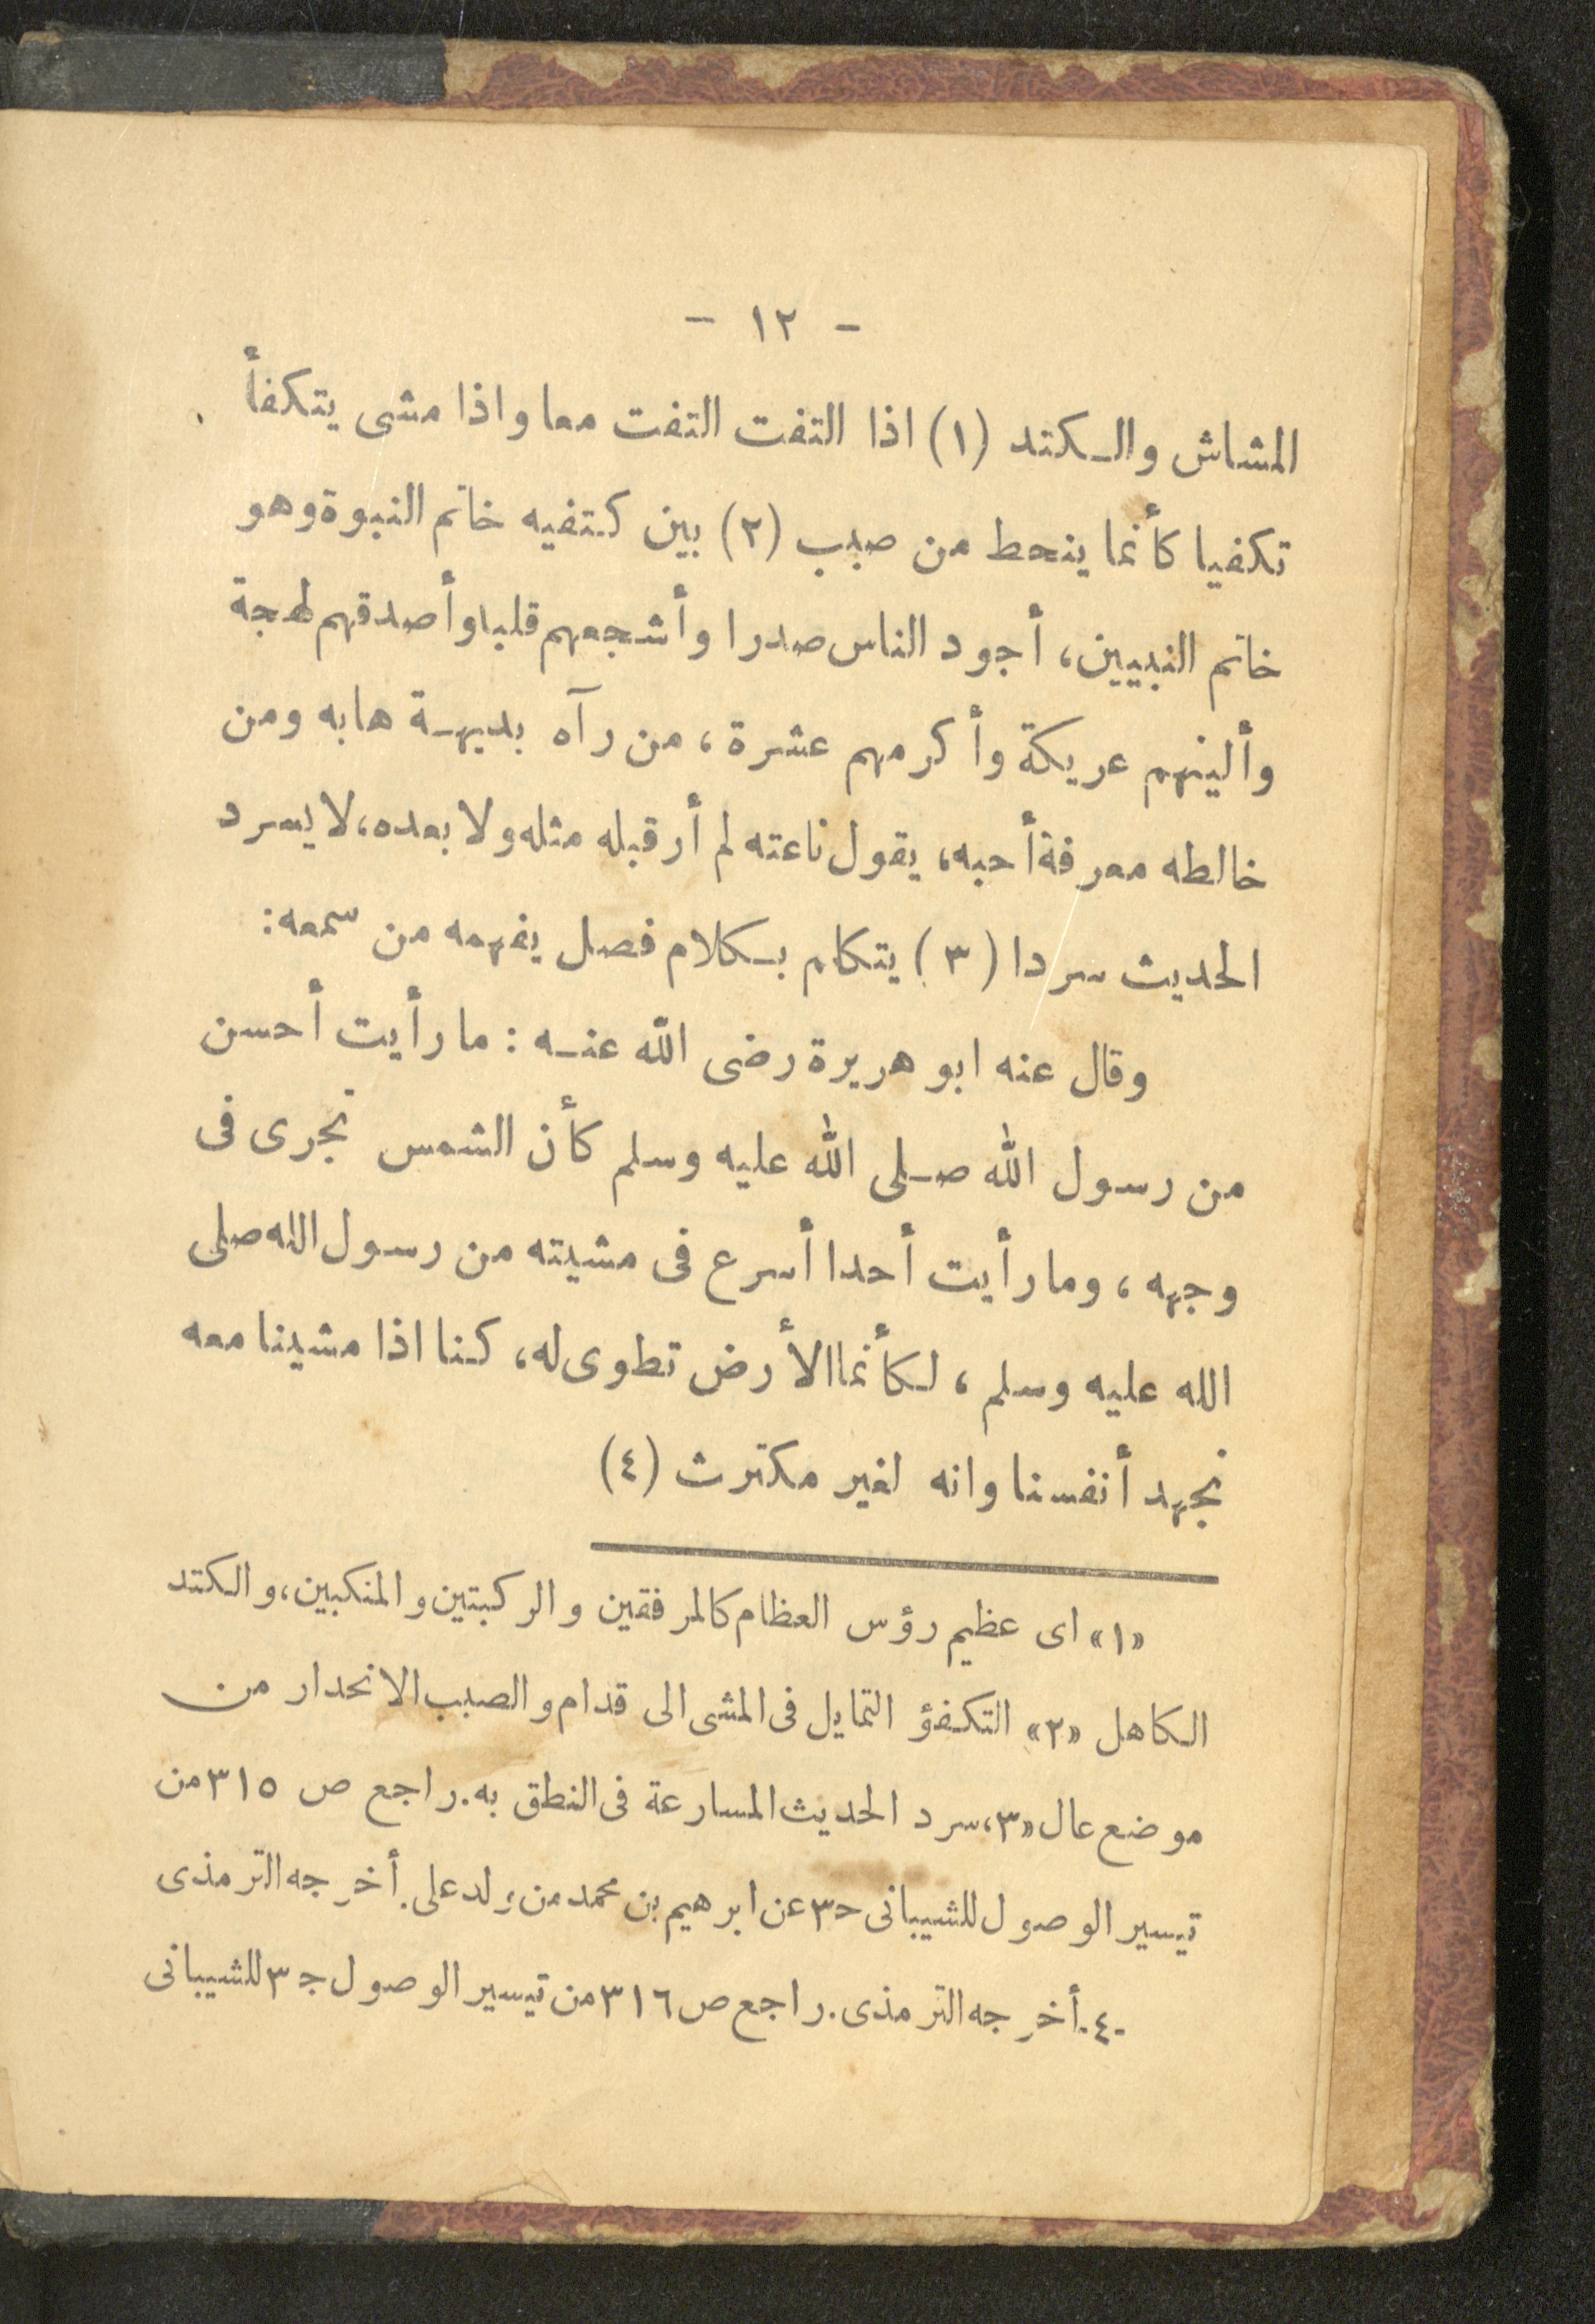 - ١٢ -
المشاش والكتد (١) اذا التفت التفت معا واذا مشى يتكفأ
تكفيا كأنما ينحط من صبب (٢) بين كتفيه خاتم النبوة وهو
خاتم النبيين، أجود الناس صدرا وأشجعهم قلبا وأصدقهم لهجة
وألينهم عريكة وأكرمهم عشرة، من رآه بديهة هابه ومن
خالطه معرفة أحبه، يقول ناعته لم أر قبله مثله ولا بعده، لا يسرد
الحديث سردا (٣) يتكلم بكلام فصل يفهمه من سمعه:
وقال عنه ابو هريرة رضى الله عنه: ما رأيت أحسن
من رسول الله صلى الله عليه وسلم كأن الشمس تجرى فى
وجهه، وما رأيت أحدا أسرع فى مشيته من رسول الله صلى
الله عليه وسلم، لكأنما الأرض تطوى له، كنا اذا مشينا معه
نجهد أنفسنا وانه لغير مكترث (٤)
«١» اى عظيم رؤس العظام كالمرفقين والركبتين والمنكبين، والكتد
الكاهل «٢» التكفؤ التمايل فى المشى الى قدام والصبب الانحدار من
موضع عال «٣، سرد الحديث المسارعة فى النطق به. راجع ص ٣١٥ من
تيسير الوصول للشيبانى ح٣ عن ابرهيم بن محمد من ولد على. أخرجه الترمذى
.٤. أخرجه الترمذى. راجع ص ٣١٦ من تيسير الوصول ج ٣ للشيبانى